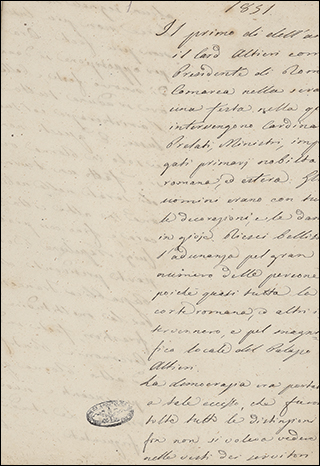 1851
Il primo di dell'an
il card Altieri com
Presidente di Rom
Comarca nella sera
una festa nella q
intervengono Cardina
Prelati, Ministri, imp
gati primarj nobiltà
romana, ed estera. Gl
uomini erano con tut
te decorazioni, e le dam
in gioje. Riescì bellis
l'adunanza pel gran
numero delle persone
poichè quasi tutta la
corte romana, ed altri i
tervennero, e pel magni
fico locale del Palazzo
Altieri.
La democrazia era porta
a tale eccesso, che furo
tolte tutte le distinzion
fra non si voleva vedere
nelle vesti dei servitori